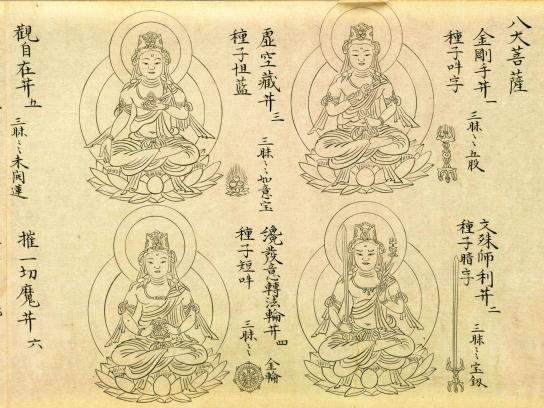 八大菩薩
金剛手井一
種子吽字
三昧〻五股
文殊師利井二
種子暗字
三昧〻宝釼
虛空藏井三
種子怛藍
三昧〻如意宝
纔發意轉法輪井四
種子短吽
三昧〻金輪
觀自在井五
三昧〻未開蓮
摧一切魔井六